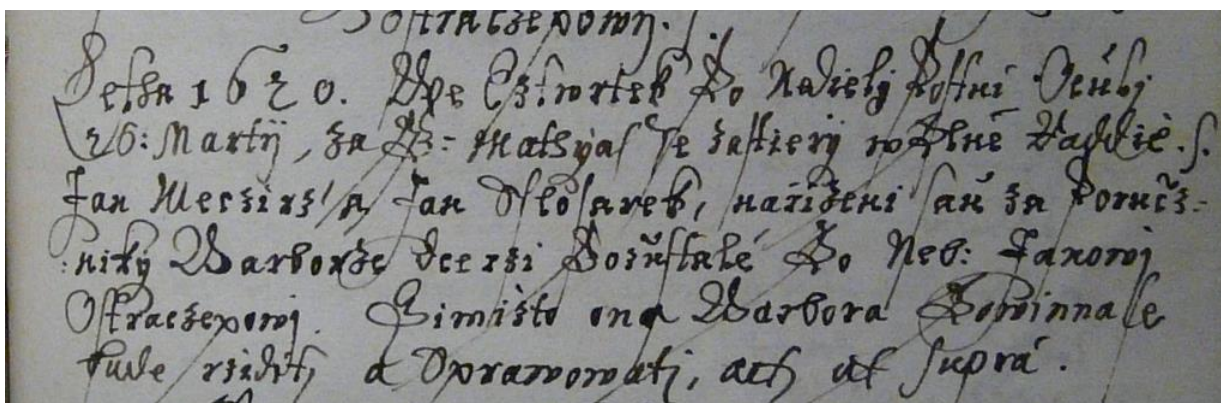 Ostraczepowj.
Letha 1620. We Cztwrtek Po Nedielj Postni Oculj
26: Martij, za P: Mathyas Se zastierý w Plné Raddie. S.
Jan Meczirz a Jan Slosarek, nařizeni sau za Poručz-
:niký Warborze dcerzi Pozůstalé Po Neb: Janowj
Ostraczepowj. Gimižto ona Warbora Powinna se
bude rzidití a Oprawowatj, act ut supra.